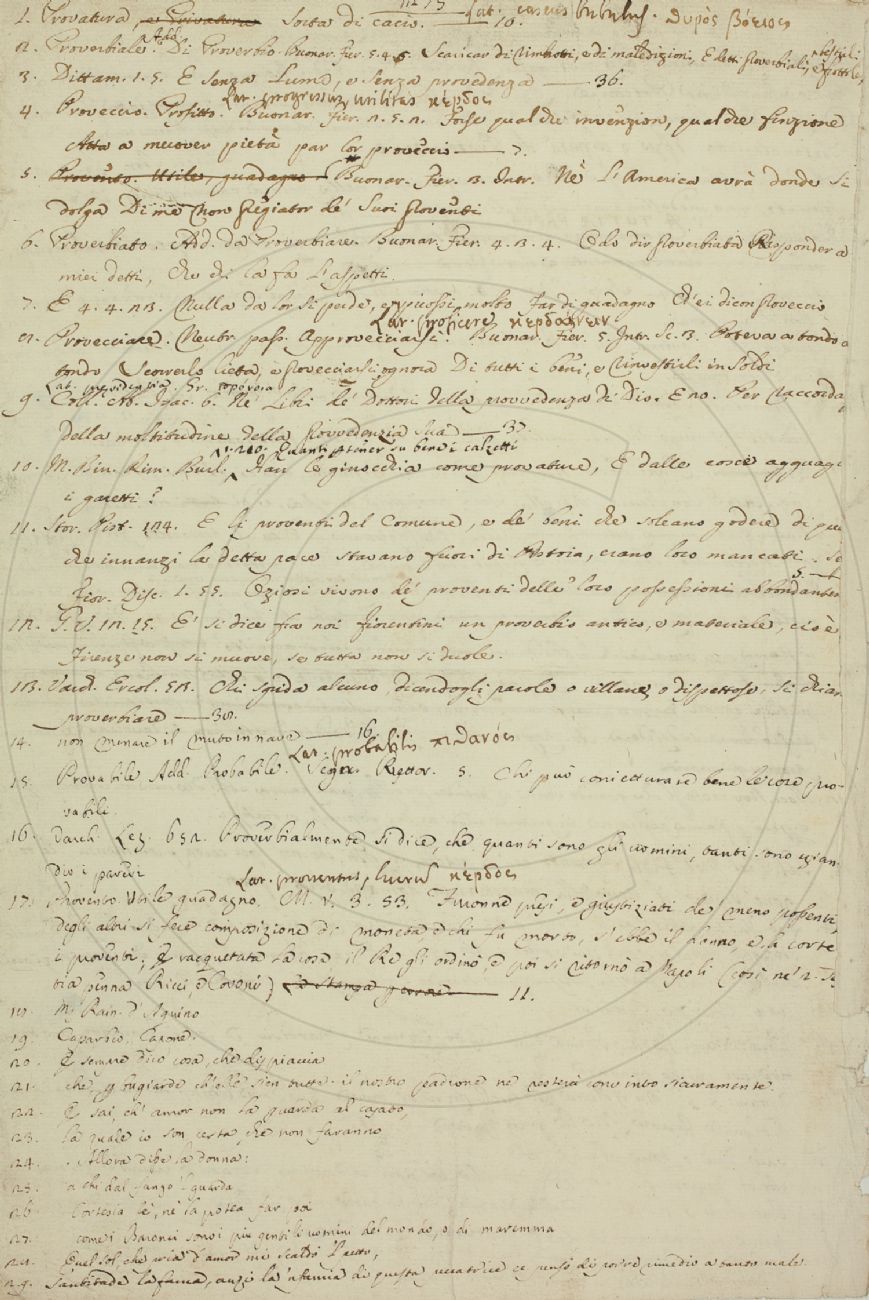 1. Provatura, e Privatura sorta di cacio. — 10. Lat. caseus bubulus. τυρὸς βόειος
2. Proverbiale Add. Di Proverbio. Buonar. Fier. 5. 4. 6. Scaricar di e di maledizioni, E detti proverbiali,
3. Dittam. 1. 5. E senza lume, e senza provedenza — 36.
Lat. progressus, utilitas κέρδος
4. Proveccio. Profitto. Buonar. Fier. 2. 5. 2. Forse qualche invenzion, qualche finzione
Atta a muover pietà par lor proveccio — 7.
5. Provento. Utile, guadagno. Buonar. Fier. 3. Intr. Nè l'America avrà donde si
dolga Di me non fregiator de' suoi proventi
6. Proverbiato. Add. da Proverbiare. Buonar. Fier. 4. 3. 4. Odo dir proverbiata Risponder a
miei detti, Che chi la fa l'aspetti.
7. E 4. 4. 23. Nulla da lor si perde, e piccossi molto Far di guadagno Ch'ei dicon proveccio
Lat. proficere κερδαίνειν
8. Provecciare. Neutr. pass. Approvecciarsi. Buonar. Fier. 5. Intr. Sc. 3. Poteva a tondo a
tondo Scorrerlo lieta, e provecciarsi ognora Di tutti i beni, e rinvestirli in soldi
Lat. providentia. Gr.
9. Coll. Ab. Isac. 6. Ne' Libri de' Dottori della provvedenza di Dio. E no. Per raccorda
della moltitudine della provvedenzia sua — 37.
1. 210. Quanti per tener su bene i calzetti
10. M. Bin. Rim. Burl. Han le ginocchia come provature, E dalle cosce agguagl
i garetti?
11. Stor. Pist. 124. E li proventi del Comune, e de' beni che soleano godere di pri
che innanzi la detta pace stavano fuori di Pistoia, erano loro mancati. Se
Fior. Disc. 1. 55. Oziosi vivono de' proventi delle loro possessioni abbondantem
12. G. V. 12. 15. E' si dice fra noi fiorentini un proverbio antico, e materiale, cioè
Firenze non si muove, se tutta non si duole.
13. Varch. Ercol. 53. Chi sgrida alcuno, dicendogli parole o villane, o dispettose, si chiam
proverbiare — 38.
14. non menare il muto in nave — 16.
Lat. probabilis πιθανός
15. Provabile Add. Probabile. Segn. Rettor. 5. Chi può conietturare bene le cose pro-
vabili.
16. Varch. Lez. 632. Proverbialmente si dice, che quanti sono gli uomini, tanti sono ezian-
dio i pareri
Lat. proventus, lucrum κέρδος
17. Provento Utile guadagno. M. V. 3. 83. Furonne presi, e giustiziati de' meno possenti,
degli altri si fece composizione di moneta e chi fu morto, s'ebbe il danno, e la corte
i proventi; E racquetata la cosa il Re gli ordinò, e poi si ritornò a Napoli (così ne' 2. Te
sti a penna Ricci, e Covoni) — 11.
18. M. Rain. d'Aquino
19. Caporso. Carone.
20. E sempre dico cosa, che dispiaccia
21. che, per bugiarde ch'elle sien tutte. il nostro padrone ne resterà convinto sicuramente.
22. E sai, ch'amor non la guarda al casato,
23. la quale io son certa, che non faranno
24. Allora disse la donna:
25. a chi dal fango sguarda
26. Cortesia le', ne la potea far poi
27. come i Baronci sono i più gentili uomini del mondo, o di maremma
28. Quel sol, che pria d'amor mi scaldò 'l petto,
29. santitade la fama, anzi la 'nfamia di questa peccatrice e pensò di porre rimedio a tanto male